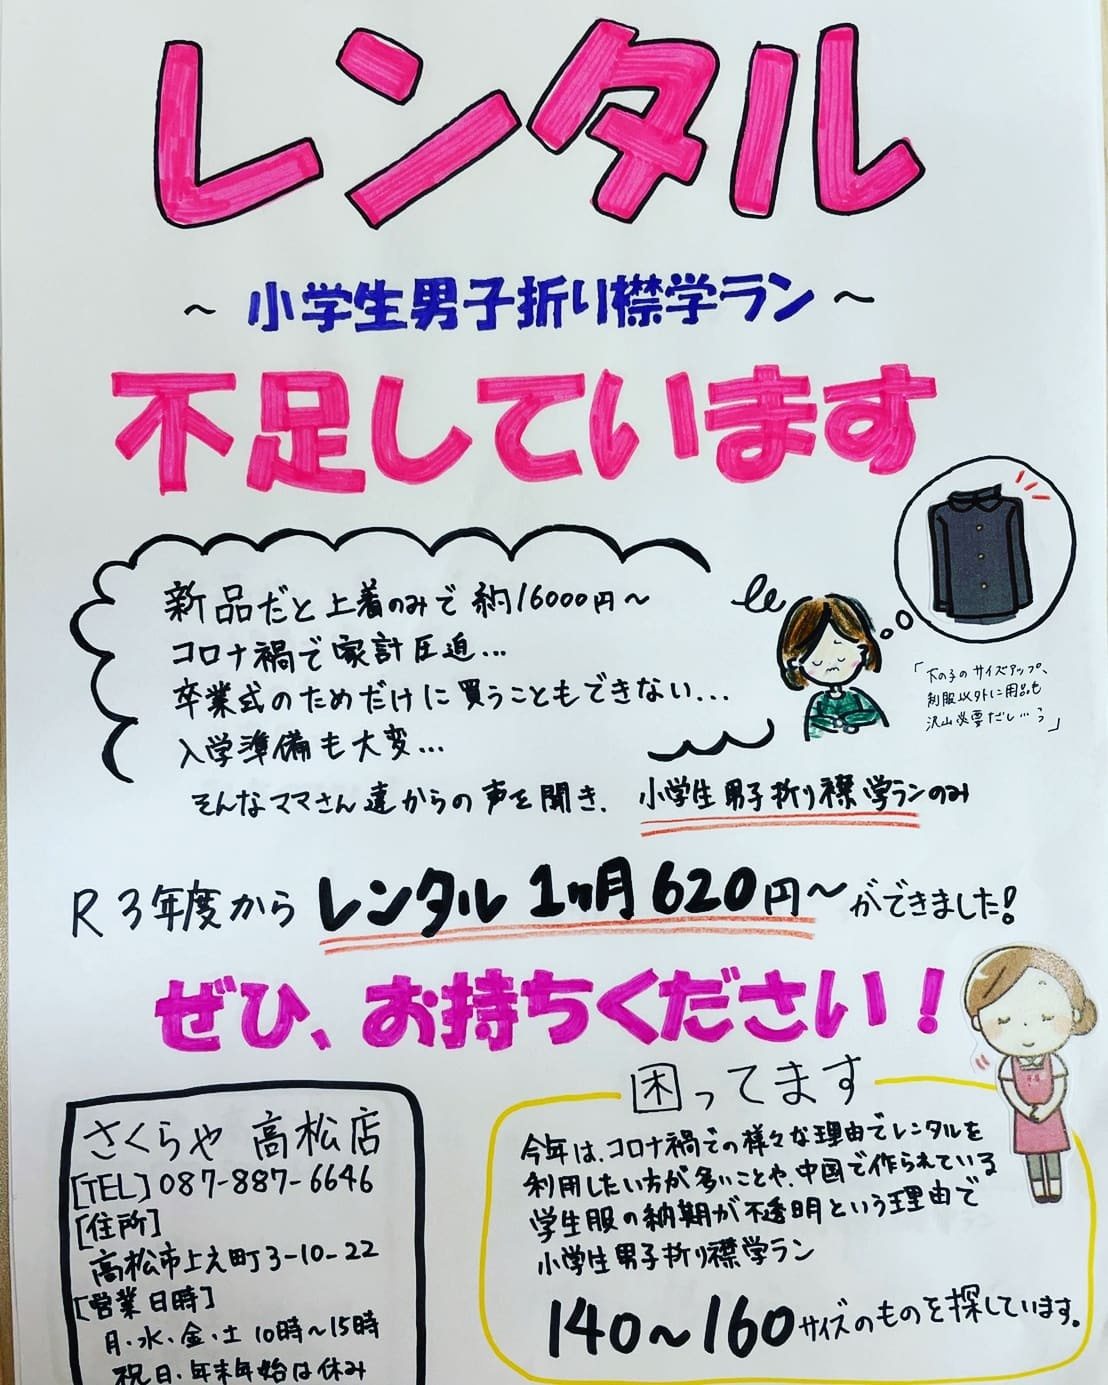 レンタル
～小学生男子折り襟学ラン～
不足しています
新品だと上着のみで約16000円～
コロナ禍で家計圧迫…
卒業式のためだけに買うこともできない…
入学準備も大変…
「下の子のサイズアップ、
制服以外に用品も
沢山必要だし…う」
そんなママさん達からの声を聞き、小学生男子折り襟学ランのみ
R3年度からレンタル1ヶ月620円～ができました!
ぜひ、お持ちください！
さくらや 高松店
[TEL]087-887-6646
[住所]
高松市上之町3-10-22
[営業日時]
月・水・金・土 10時～15時
祝日・年末年始は休み
困ってます
今年は、コロナ禍での様々な理由でレンタルを
利用したい方が多いことや、中国で作られている
学生服の納期が不透明という理由で
小学生男子折り襟学ラン
140～160サイズのものを探しています。